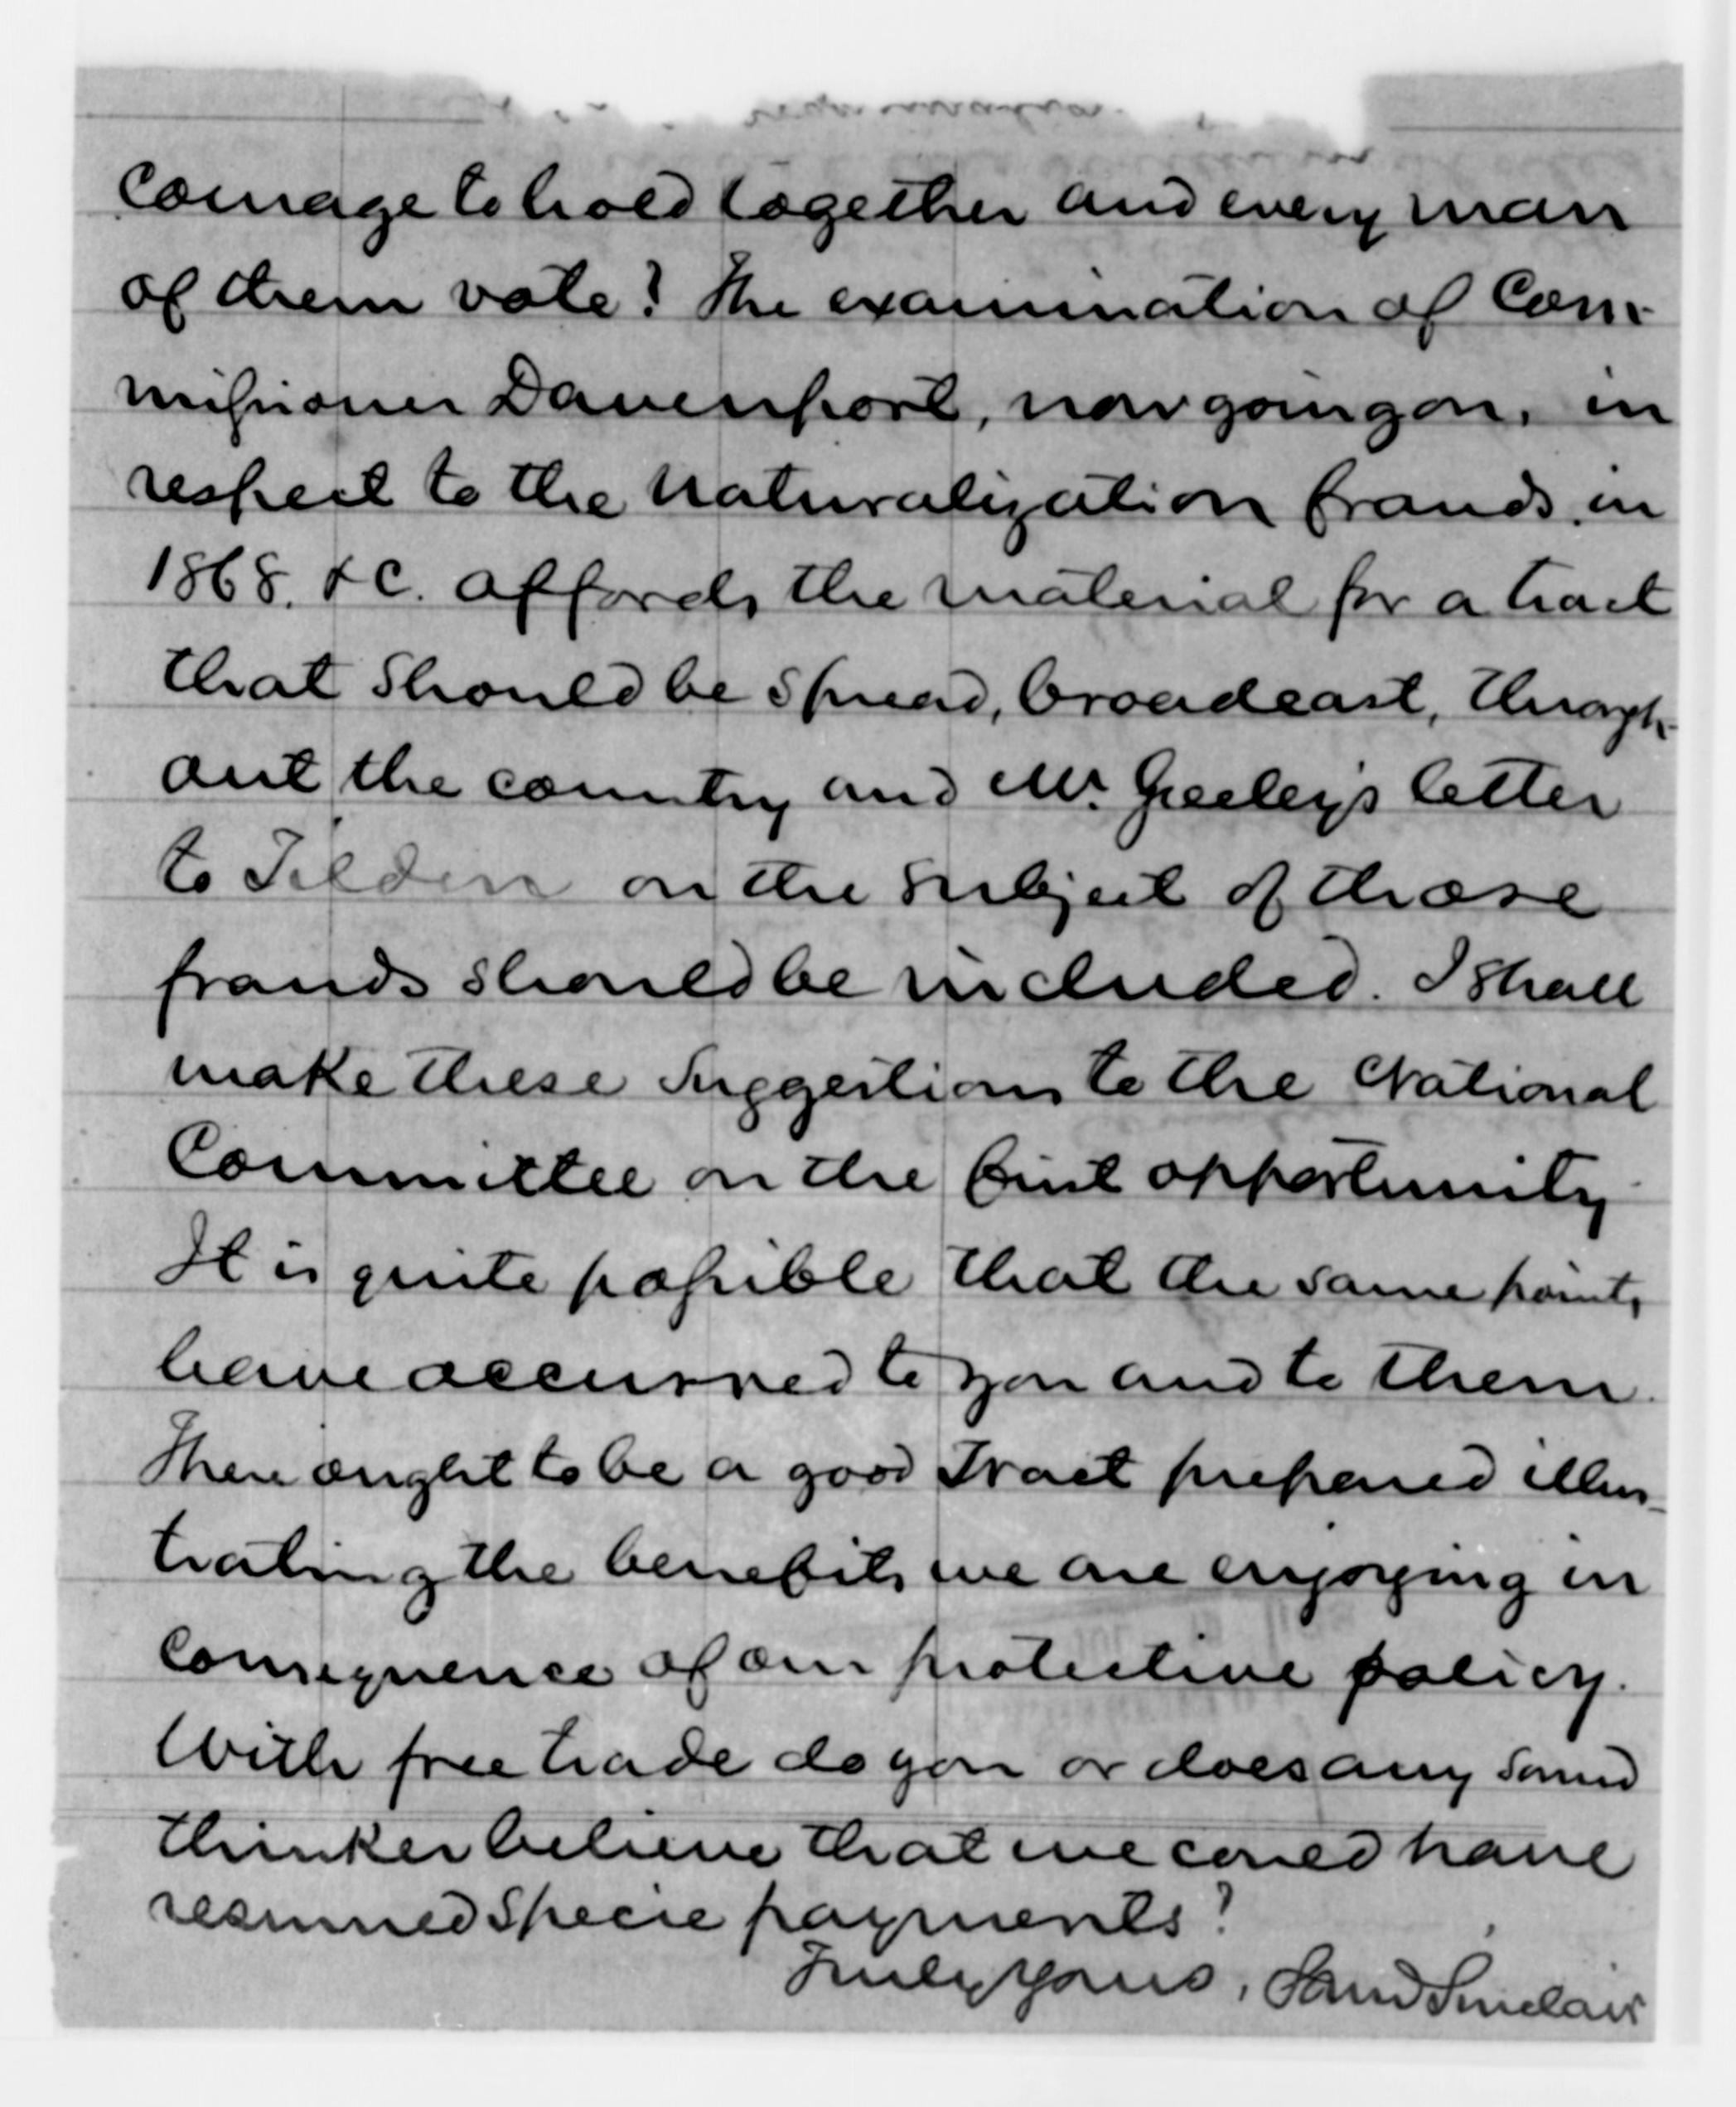 courage to hold together and every man
of them vote? The examination of Com-
missioner Davenport, now going on, in
respect to the naturalization frauds in
1868. &c. affords the material for a tract
that should be spread, broadcast, through-
out the country and Mr. Greeley's letter
to Tilden on the subject of those
frauds should be included. I shall
make these suggestions to the National
Committee on the first opportunity
It is quite possible that the same points
have occurred to you and to them.
There ought to be a good Tract prepared illus-
trating the benefits we are enjoying in
consequence of our protective policy.
With free trade do you or does any sound
thinker believe that we could have
resumed specie payments?
Truly yours, Saml Sinclair